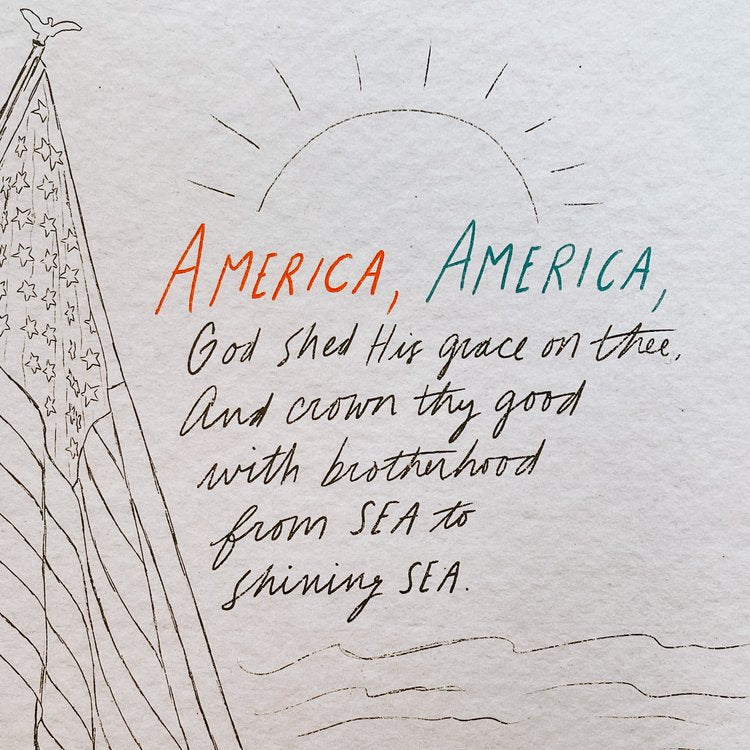 AMERICA, AMERICA,
God shed His grace on thee.
And crown thy good
with brotherhood
from SEA to
shining SEA.